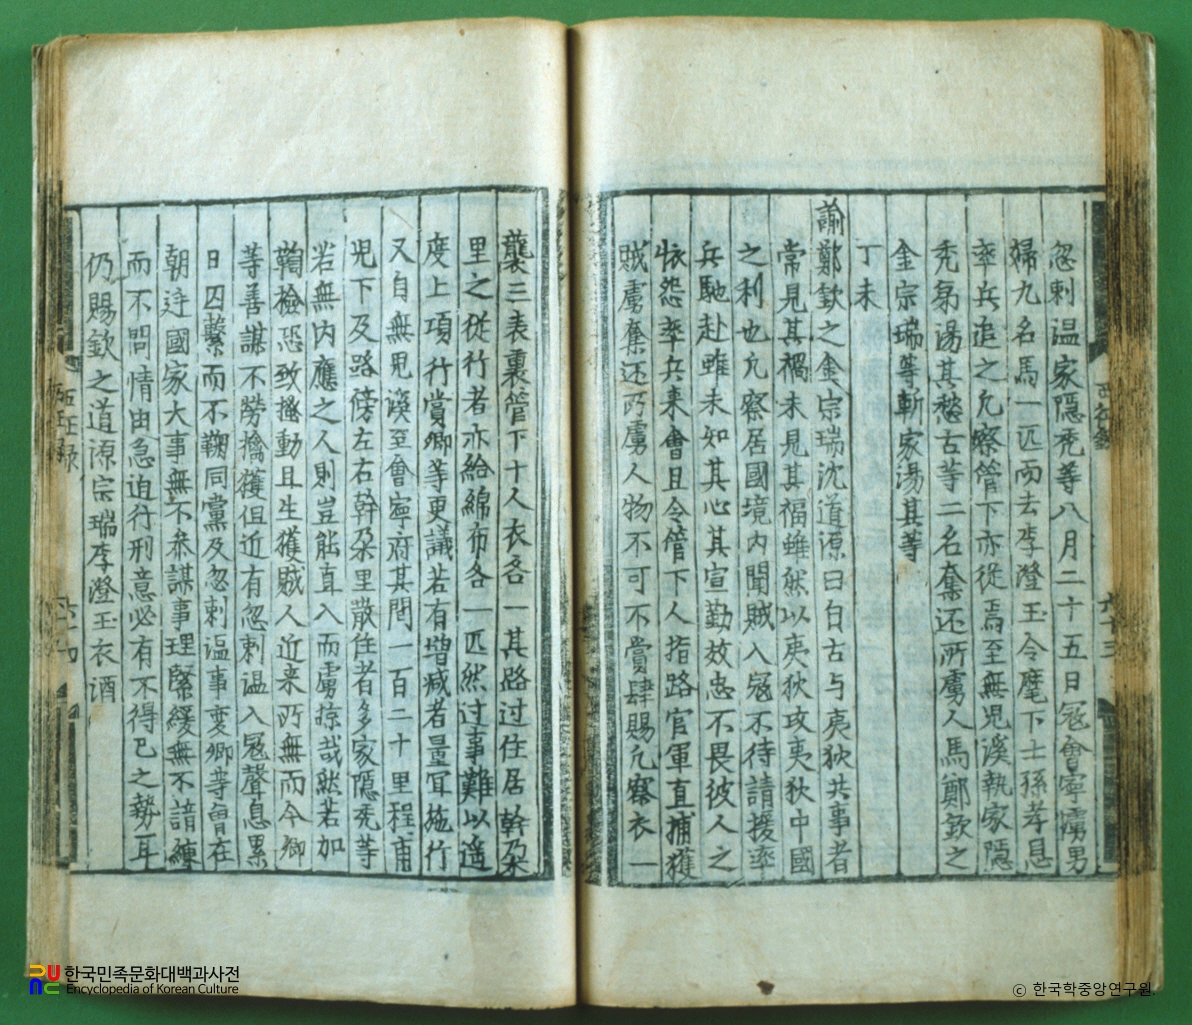 忽剌温家隱禿等八月二十五日冦會寧虜男
婦九名馬一匹而去李澄玉令麾下士孫孝息
率兵追之凣察管下亦從焉至無兒溪執家隱
禿芻湯其愁古等二名奪还所虜人馬鄭欽之
金宗瑞等斬家湯其等
丁未
諭鄭欽之金宗瑞沈道源曰自古与夷狄共事者
常見其禍未見其福雖然以夷狄攻夷狄中國
之利也凣察居國境内聞賊入冦不待請援率
兵馳赴雖未知其心其宣勤效忠不畏彼人之
恠怨率兵来會且令管下人指路官軍直捕獲
賊虜奪还所虜人物不可不賞肆賜凣察衣一
襲三表裏管下十人衣各一其路过住居斡朶
里之従行者亦給綿布各一匹然过事難以遥
度上項行賞卿等更議若有增减者量冝施行
又自無兒溪至會寧府其間一百二十里程甫
兒下及路傍左右斡朶里散住者多家隱禿等
若無内應之人則豈能直入而虜掠哉然若加
鞫檢恐致搔動且生獲賊人近来所無而今卿
等善謀不勞擒獲但近有忽剌温入冦聲息累
日囚繫而不鞫同黨及忽剌温事変卿等曽在
朝迬國家大事無不叅謀事理緊緩無不諳練
而不問情由急迫行刑意必有不得已之勢耳
仍賜欽之道源宗瑞李澄玉衣酒
六十三
한국민족문화대백과사전
Encyclopedia of Korean Culture
ⓒ 한국학중앙연구원.